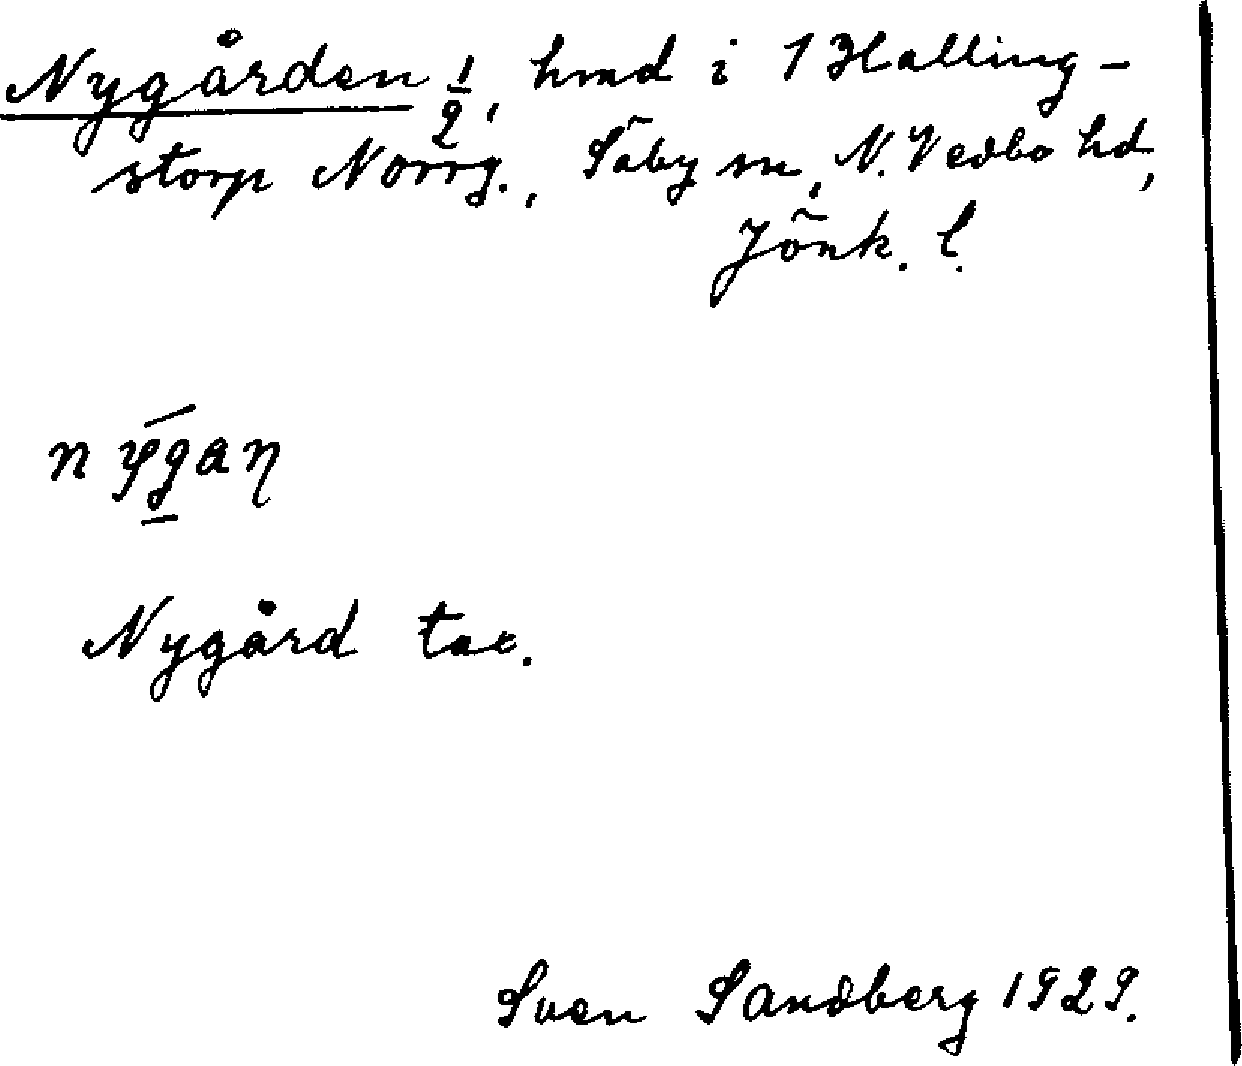 Nygården 1/2, hmd i 1 Halling-
storp Norrg., Säby sn, N. Vedbo hd,
Jönk. l.
nýgaɳ
Nygård tax.
Sven Sandberg 1929.